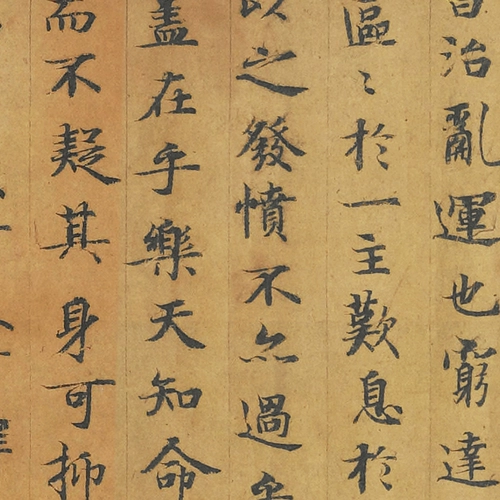 治亂運也窮達
區〻於一主歎息於
以之發憤不亦過
蓋在乎樂天知命
而不疑其身可抑